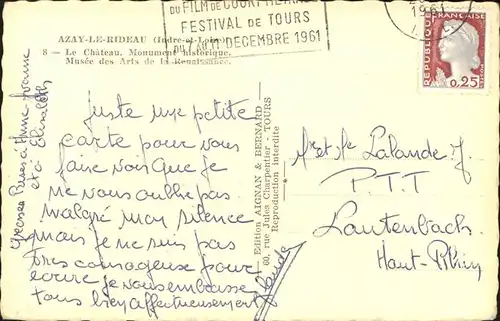 DU FILM DE COURT METRAGE
FESTIVAL DE TOURS
DU 7 AU 11 DECEMBRE 1961
1961
REPUBLIQUE FRANÇAISE
0,25
AZAY-LE-RIDEAU (Indre-et-Loire)
8 — Le Château. Monument historique.
Musée des Arts de la Renaissance.
Grosses Bises à Anne-Yvonne
et à Elisabeth
Juste une petite
carte pour vous
faire voir que je
ne vous oublie pas
malgré mon silence
mais je ne suis pas
très courageuse pour
écrire je vous embrasse
tous bien affectueusement
Edition AIGNAN & BERNARD
60, rue Jules Charpentier - TOURS
Reproduction interdite
Mr et Me Lalande J.
P.T.T
Lautenbach
Haut-Rhin